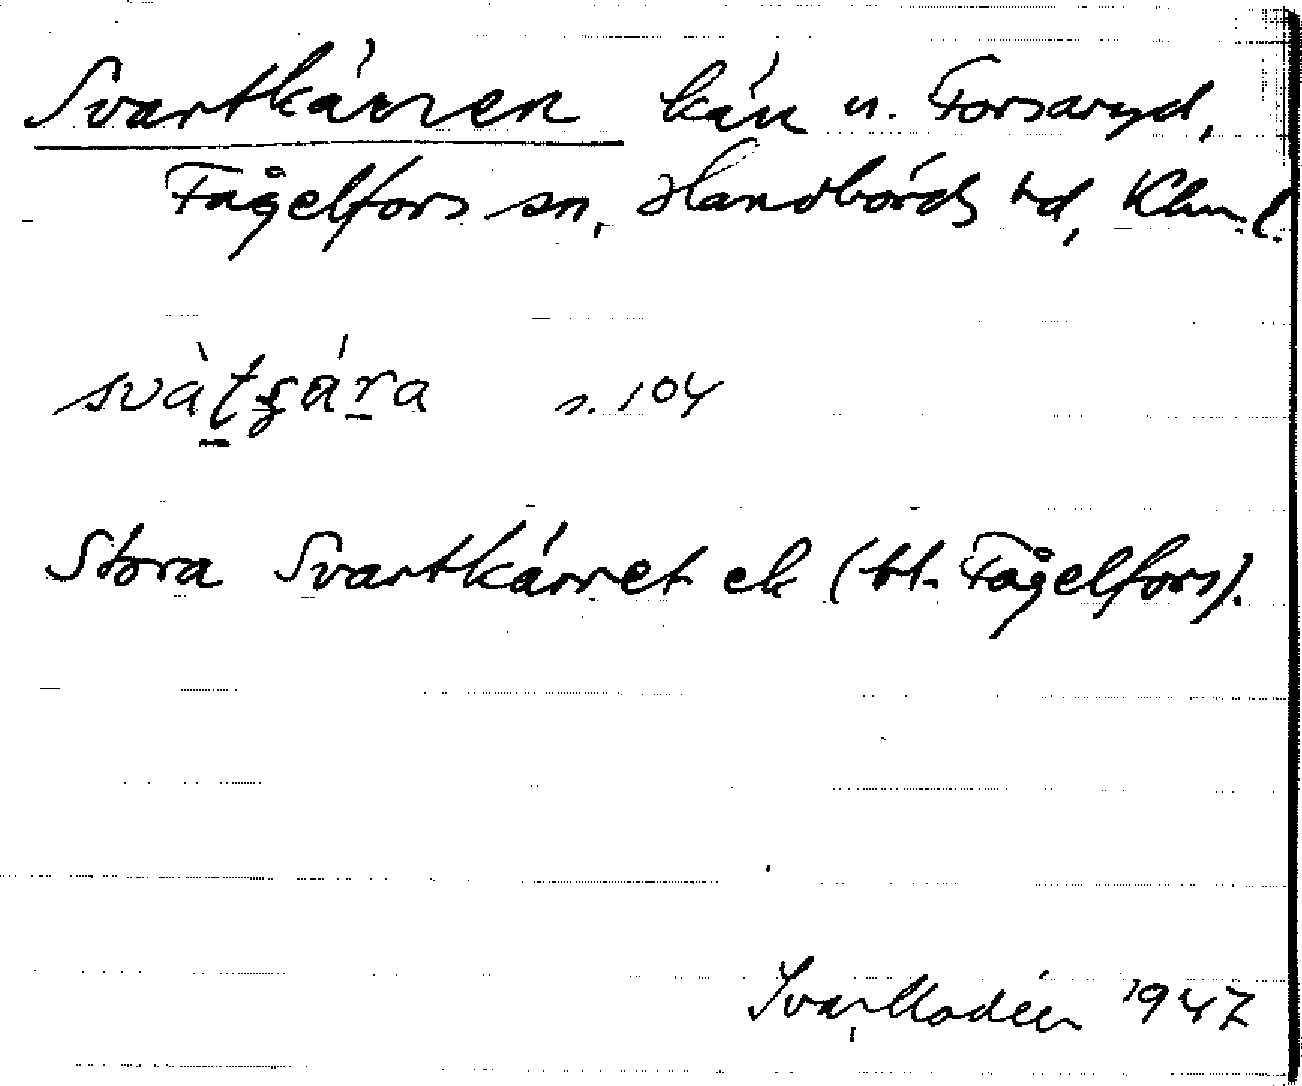 Svartkärren kärr u. Forsaryd,
Fågelfors sn, Handbörds hd, Klm. l.
s. 104
Stora Svartkärret ek (bl. Fågelfors).
Ivar Modéer 1947